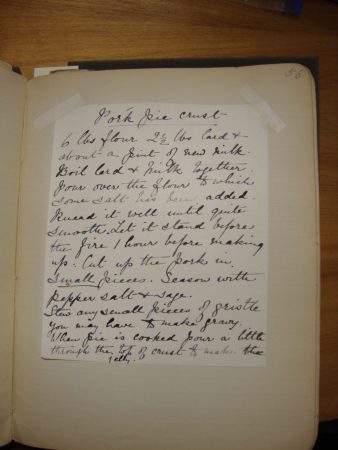 55
Pork pie crust
6 lbs flour 2½ lbs lard &
about a pint of new milk.
Boil lard & milk together.
Pour over the flour to which
some salt has been added.
Knead it well until quite
smooth. Let it stand before
the fire 1 hour before making
up. Cut up the pork in
small pieces. Season with
pepper salt & sage.
Stew any small pieces of gristle
you may have to make gravy.
When pie is cooked pour a little
through the top of crust to make the
jelly.